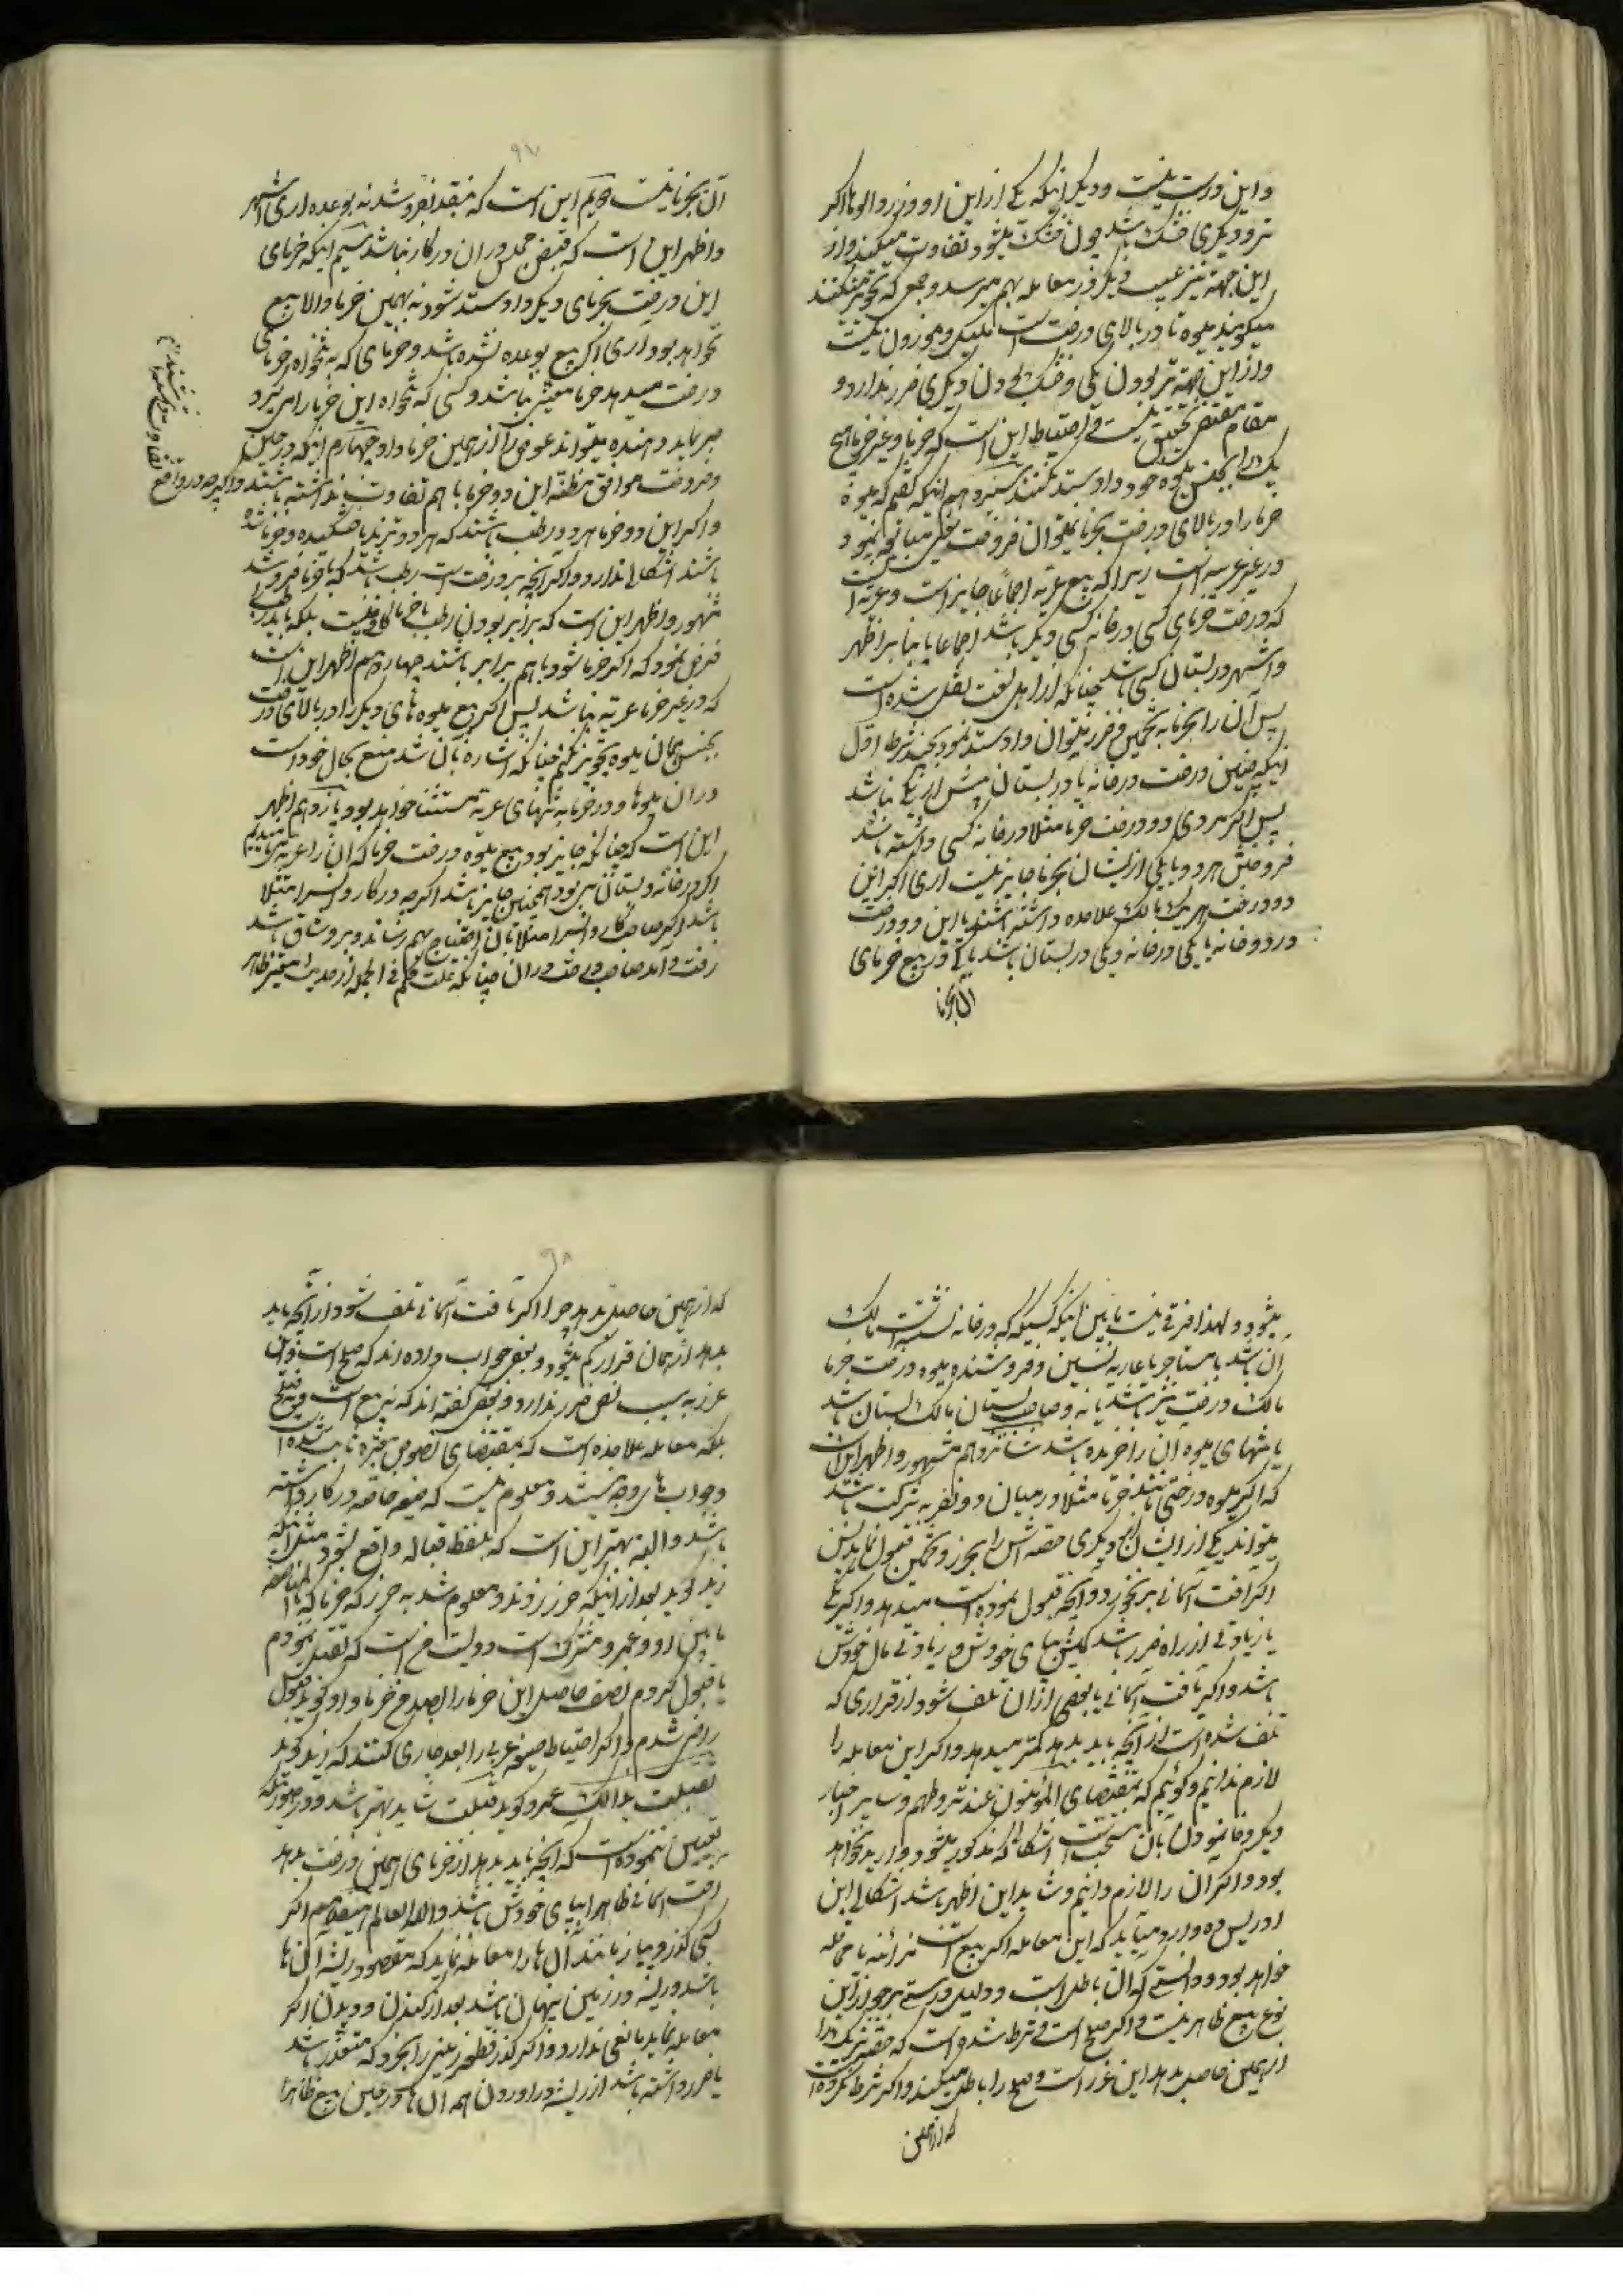 و این درست نیست و دیگر اینکه یکی از این او وزرد الوها اکر
تر و دیگری خشک باشد چون خشک میشود تفاوت میکند و از
این جهة نیز عیب دیگر در معامله بهم میرسد و جمعی که تجویز میکنند
میکویند میوه تا در بالای درخت است مکیل و موزون نیست
و از این جهة تر بودن یکی و خشک بودن دیگری ضرر ندارد و
مقام مقتضی تحقیق نیست و احتیاط این است که خرما و غیر خرما هیچ
یک را بجنس میوه خود داد و ستد نکنند سیزدهم اینکه کفتیم که میوۀ
خرما را در بالای درخت بخرما نمیتوان فروخت
در غیر عریه است زیرا که بیع عریه اجماعا جایز است و عریه
که درخت خرمای کسی در خانه کسی دیکر باشد اجماعا یا بنا بر اظهر
و اشهر در بستان کسی باشد چنانکه از اهل لغت نقل شده است
پس آن را بخرما به تخمین و خرز میتوان داد و ستد نمود بچند شرط اول
اینکه چنین درخت در خانه یا در بستان بیش از یکی نباشد
پس اکر مردی دو درخت خرما مثلا در خانه کسی داشته باشد
فروختن هر دو یا یکی از ایشان بخرما جایز نیست اری اکر این
دو درخت هر یک مالک علاحده داشته باشند یا این دو درخت
در دو خانه یا یکی در خانه و یکی در بستان باشد باکی در بیع خرمای
آن بخرما
۹۷
آن بخرما نیست دویم این است که بنقد بفروشد نه بوعده اری اشهر
و اظهر این است که قبض مجلس در ان در کار نباشد سیم اینکه خرمای
این درخت بخرمای دیکر داد و ستد شود نه بهمین خرما و الا بیع
نخواهد بود آری اکر بیع بوعده نشده باشد و خرمای که به تنخواه خرمای
درخت میدهد خرما معینی نباشد و کسی که تنخواه این خرما را میکیرد
صبر نماید دهنده میتواند عوض را از همین خرما داد چهارم اینکه در حین
و فروخت موافق مظنه این دو خرما با هم تفاوت نداشته باشند و اکر چه در واقع
و اکر این دو خرما هر دو رطب باشند که هر دو ترند یا خشکیده و خرما شده
باشند اشکالی ندارد و اکر آنچه بر درخت است رطب باشد که با خرما فروشند
مشهور و اظهر این است که برابر بودن رطب با خرما کافی نیست بلکه باید رطب را
فرض نمود که اکر خرما شود با هم برابر باشند چهاردهم اظهر این است
که در غیر خرما عریه نباشد پس اکر بیع میوه های دیکر را در بالای درخت
بجنس همان میوه تجویز نکنیم چنانکه اشاره بآن شد منع بحال خود است
در ان میوها و در خرما به تنهای عریه مستثنا خواهد بود پانزدهم اظهر
این است که چنانکه جایز بود بیع میوه درخت خرما که ان را عریه مینامیم
اکر در خانه و بستان میبود همچنین جایز باشد اکر چه در کاروانسرا مثلا
باشد اکر صاحب کاروانسرا مثلا بآن احتیاج بهم رساند و بر و شاق باشد
رفت و آمد صاحب درخت در ان چنانکه علت حکم فی الجمله از حدیث معتبر ظاهر
میشود و لهذا فرقی نیست ما بین اینکه کسیکه در خانه نشسته است مالک
ان باشد یا مستاجر یا عاریه نشین و فروشنده میوه درخت خرما
مالک درخت نیز باشد یا نه و صاحب بستان مالک بستان باشد
یا تنهای میوه آن را خریده باشد شانزدهم مشهور و اظهر این است
که اکر میوه درختی مانند خرما مثلا در میان دو نفر به شرکت باشد
میتواند یکی از ایشان دیکری حصه اش را بخرز و تخمین قبول نماید پس
اکر آفت آسمانی بر نخورد و آنچه قبول نموده است میدهد و اکر کمی
یا زیادتی از راه خرز باشد کمیش بپای خودش و زیادتی مال خودش
باشد و اکر بآفت آسمانی یا بعضی از ان تلف شود از قراری که
تلف شده است از آنچه باید بدهد کمتر میدهد و اکر این معامله را
لازم ندانیم و کوئیم که بمقتضای المؤمنون عند شروطهم و سایر اخبار
دیکر وفا نمودن بآن مستحب است اشکالی که مذکور میشود وارد نخواهد
بود و اکر ان را لازم دانیم و شاید این اظهر باشد اشکال ابن
ادریس ره وارد میآید که این معامله اکر بیع است مزابنه یا محاقله
خواهد بود و دانستی که ان باطل است و دلیل درستی بر جواز این
نوع بیع ظاهر نیست و اکر صلح است و شرط شده است که حصه شریک را
از همین حاصل بدهد این غرر است و صلح را باطل میکند و اکر شرط نکرده
که از همین
۹۸
که از همین حاصل بدهد چرا اکر بآفت آسمانی تلف شود از آنچه باید
بدهد از همان قرار کم میشود و بعضی جواب داده اند که صلح است و این
غرر به سبب نص ضرر ندارد و بعضی کفته اند که نه بیع است و نه صلح
بلکه معامله علاحده است که بمقتضای نصوص معتبره ثابت شده
و جواب های وجه میشد و معلوم نیست که صیغه خاصه در کار داشته
باشد و البته بهتر این است که بلفظ قباله واقع شود مثل اینکه
زید کوید بعد از اینکه خرز زدند و معلوم شد به خرز که خرما که
ما بین او و عمرو مشترک است دویست من است که تقبل نمودم
یا قبول کردم نصف حاصل این خرما را بصد من خرما و او کوید قبول
راضی شدم و اکر احتیاط صیغه عربی را بعد جاری کنند که زید کوید
تقبلت بذالک عمرو کوید قبلت شاید بهتر باشد و در صورتیکه
تعیین ننموده است که آنچه باید بدهد از خرمای همین درخت بدهد
آفت آسمانی ظاهرا بپای خودش باشد و الله العالم هفدهم اکر
کسی کزر و پیاز مانند آن ها را معامله نماید که مقصود ریشه آن ها
باشد و ریشه در زمین پنهان باشد بعد از کندن و دیدن اکر
معامله نماید مانعی ندارد و اکر کزر و مطلق در زمین را بخرد که متعذر باشد
یا ضرر داشته باشد از ریشه در آوردن همه ان ها در حین بیع ظاهرا